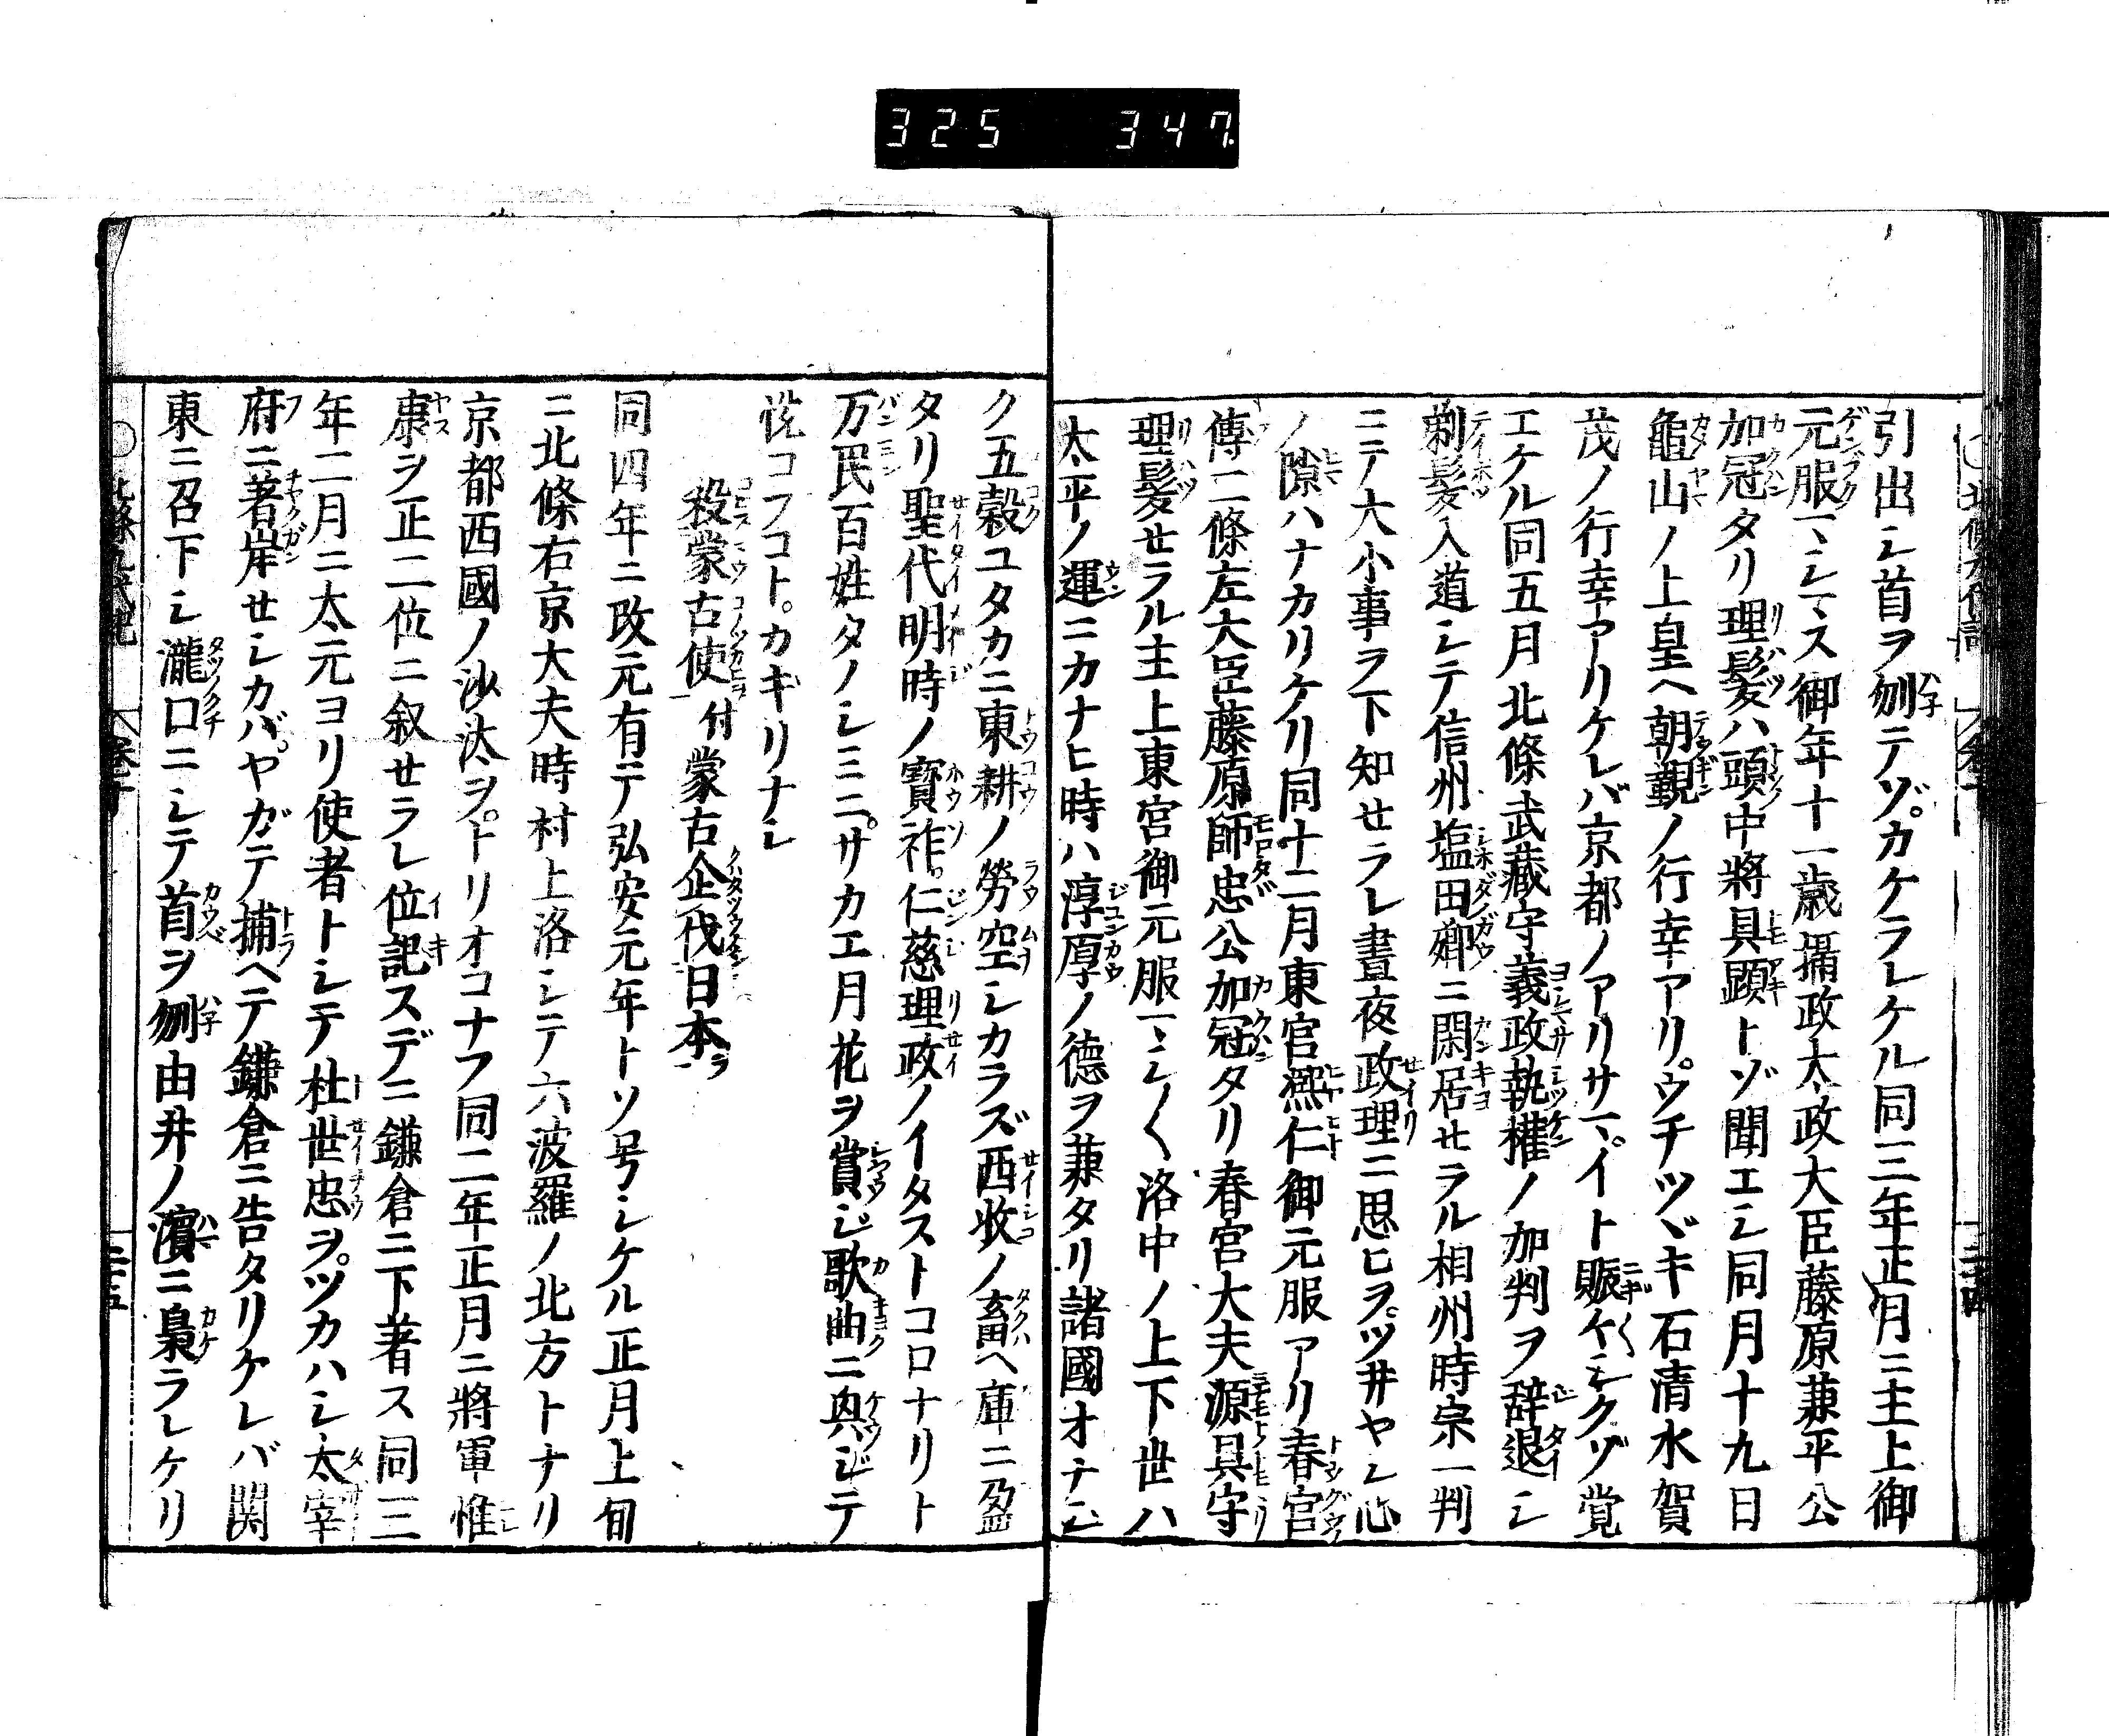 325 347
引出シ首ヲ刎テゾカケラレケル同三年正月ニ主上御
元服マシマス御年十一歳攝政太政大臣藤原兼平公
加冠タリ理髪ハ頭中將具顕トゾ聞エシ同月十九日
龜山ノ上皇ヘ朝覲ノ行幸アリウチツヾキ石清水賀
茂ノ行幸アリケレバ京都ノアリサマイト賑〱シクゾ覚
エケル同五月北條武藏守義政執權ノ加判ヲ辞退シ
剃髪入道シテ信州塩田郷ニ閑居セラル相州時宗一判
ニテ大小事ヲ下知セラレ晝夜政理ニ思ヒヲツ井ヤシ心
ノ隙ハナカリケリ同十二月東宮熈仁御元服アリ春宮
傅二條左大臣藤原師忠公加冠タリ春宮大夫源具守
理髪セラル主上東宮御元服マシ〱洛中ノ上下世ハ
太平ノ運ニカナヒ時ハ淳厚ノ德ヲ兼タリ諸國オナジ
ク五穀ユタカニ東耕ノ勞空シカラズ西收ノ畜ヘ庫ニ盈
タリ聖代明時ノ寳祚仁慈理政ノイタストコロナリト
万民百姓タノシミニサカエ月花ヲ賞ジ歌曲ニ興ジテ
悦コフコトカギリナシ
殺蒙古使付蒙古企伐日本ヲ
同四年ニ改元有テ弘安元年トソ号シケル正月上旬
ニ北條右京大夫時村上洛シテ六波羅ノ北方トナリ
京都西國ノ沙汰ヲトリオコナフ同二年正月ニ將軍惟
康ヲ正二位ニ叙セラレ位記スデニ鎌倉ニ下著ス同三
年二月ニ太元ヨリ使者トシテ杜世忠ヲツカハシ太宰
府ニ著岸セシカバヤガテ捕ヘテ鎌倉ニ告タリケレバ関
東ニ召下シ瀧口ニシテ首ヲ刎由井ノ濱ニ梟ラレケリ